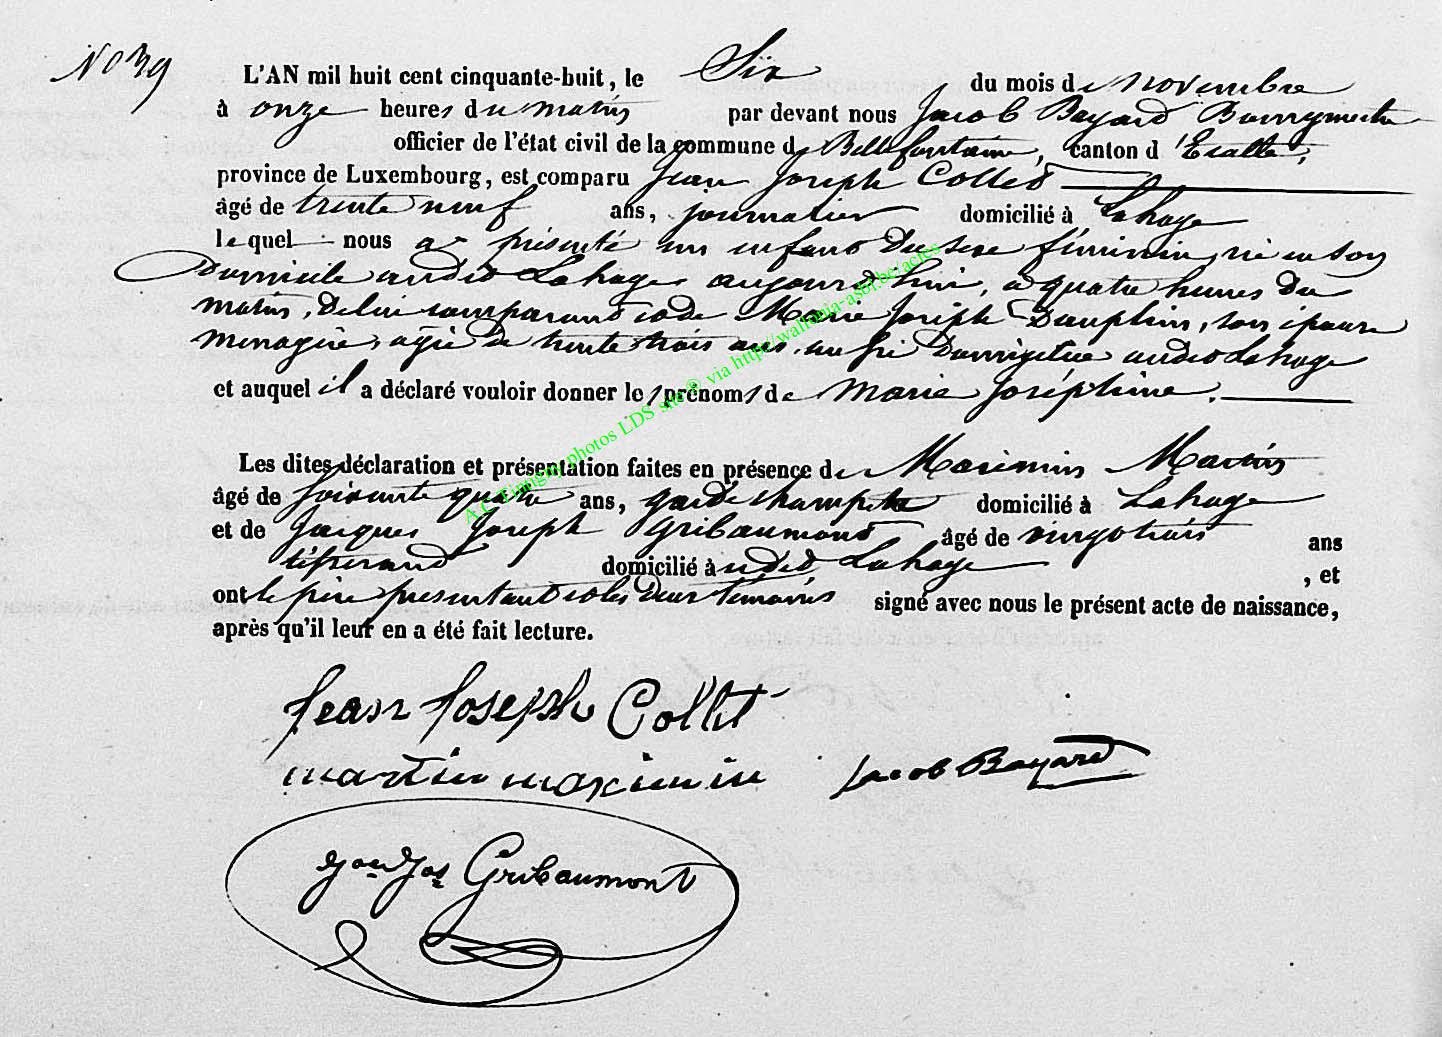 No 39
L'AN mil huit cent cinquante-huit, le Six du mois de novembre
à onze heures du matin par devant nous Jacob Bayard Bourgmestre
officier de l'état civil de la commune de Bellefontaine, canton d'Etalle,
province de Luxembourg, est comparu Jean Joseph Collet
âgé de trente neuf ans, journalier domicilié à Lahage
lequel nous a présenté un enfant du sexe féminin, né en son
domicile audit Lahage aujourd'hui, à quatre heures du
matin, de lui comparant et de Marie Joseph Dauphin, son épouse
ménagère, agée de trente trois ans, audit Lahage
et auquel il a déclaré vouloir donner les prénoms de Marie Joséphine.
Les dites déclaration et présentation faites en présence de Maximin Martin
âgé de soixante quatre ans, garde champêtre domicilié à Lahage
et de Jacques Joseph Gribaumont âgé de vingt trois ans
tisserand domicilié audit Lahage, et
ont le père présentant et les deux témoins signé avec nous le présent acte de naissance,
après qu'il leur en a été fait lecture.
Jean Joseph Collet
martin maximin Jacob Bayard
Jos Gribaumont
A.C. Tintigny photos LDS site ® via http://wallonia-asbl.be/actes